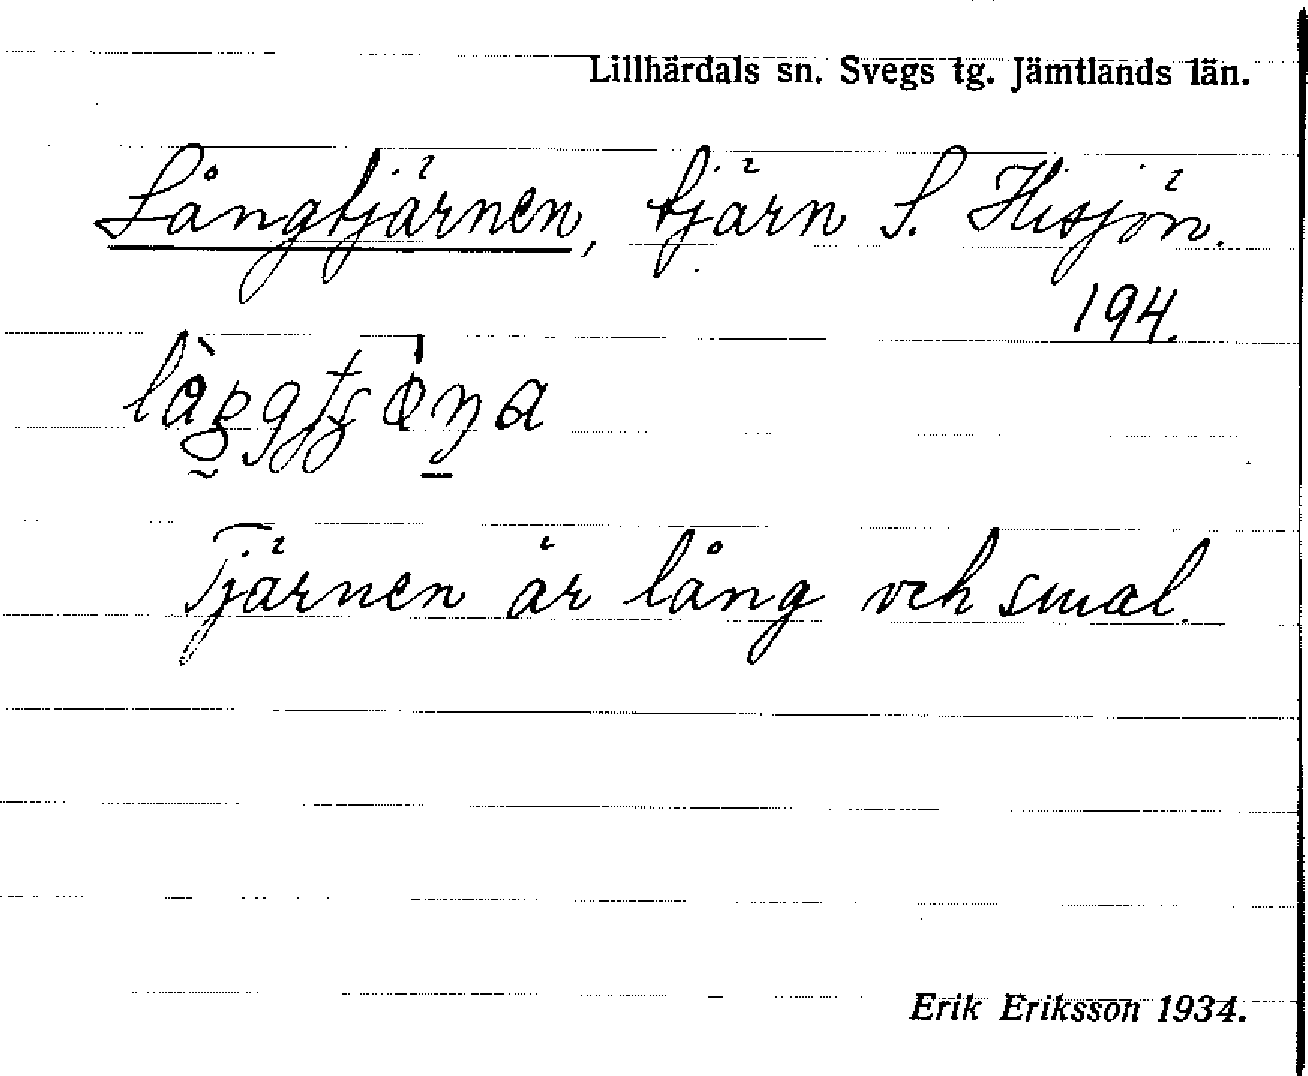 Lillhärdals sn. Svegs tg. Jämtlands län.
Långtjärnen, tjärn S. Hisjön.
194.
Tjärnen är lång och smal.
Erik Eriksson 1934.